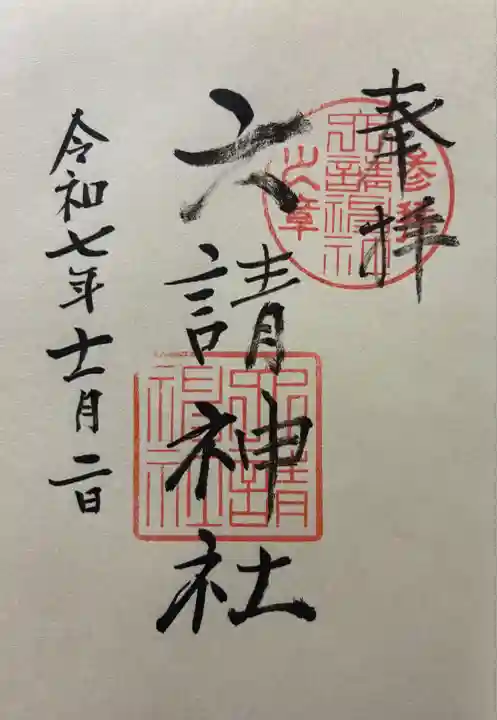 奉拝
六請神社
令和七年十一月二日
六請神社参拝之章
六請神社